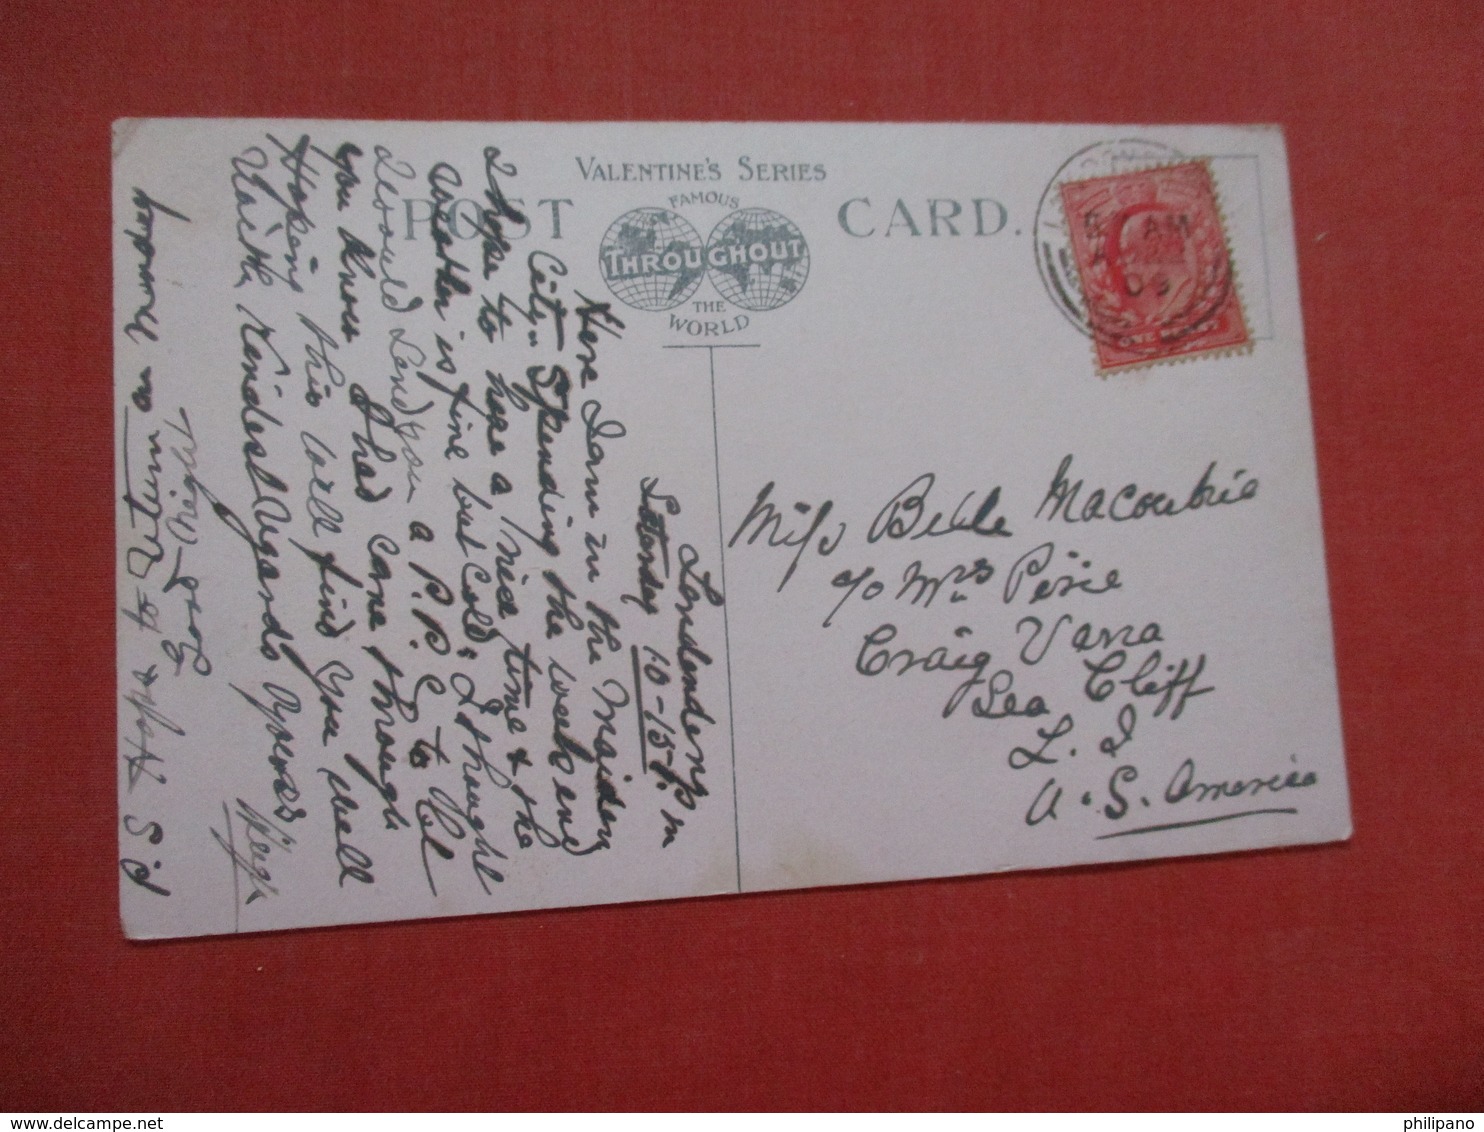 VALENTINE'S SERIES
POST CARD.
FAMOUS
THROUGHOUT
THE
WORLD
AM
09
ONE
Londonderry
Saturday 10-15 P. m
Here I am in the Maiden
City. Spending the week end
I hope to have a nice time & the
weather is fine but cold. I thought
I would send you a P. P. C. to let
you know I had come through
Hoping this will find you well
With Kindest Regards Yours
Hugh
P. S. Hope to return on Monday
Good night
Miss Belle Macoubrie
c/o Mrs Pirie
Craig Varra
Sea Cliff
L. I
U. S. America
delcampe.net
philipano